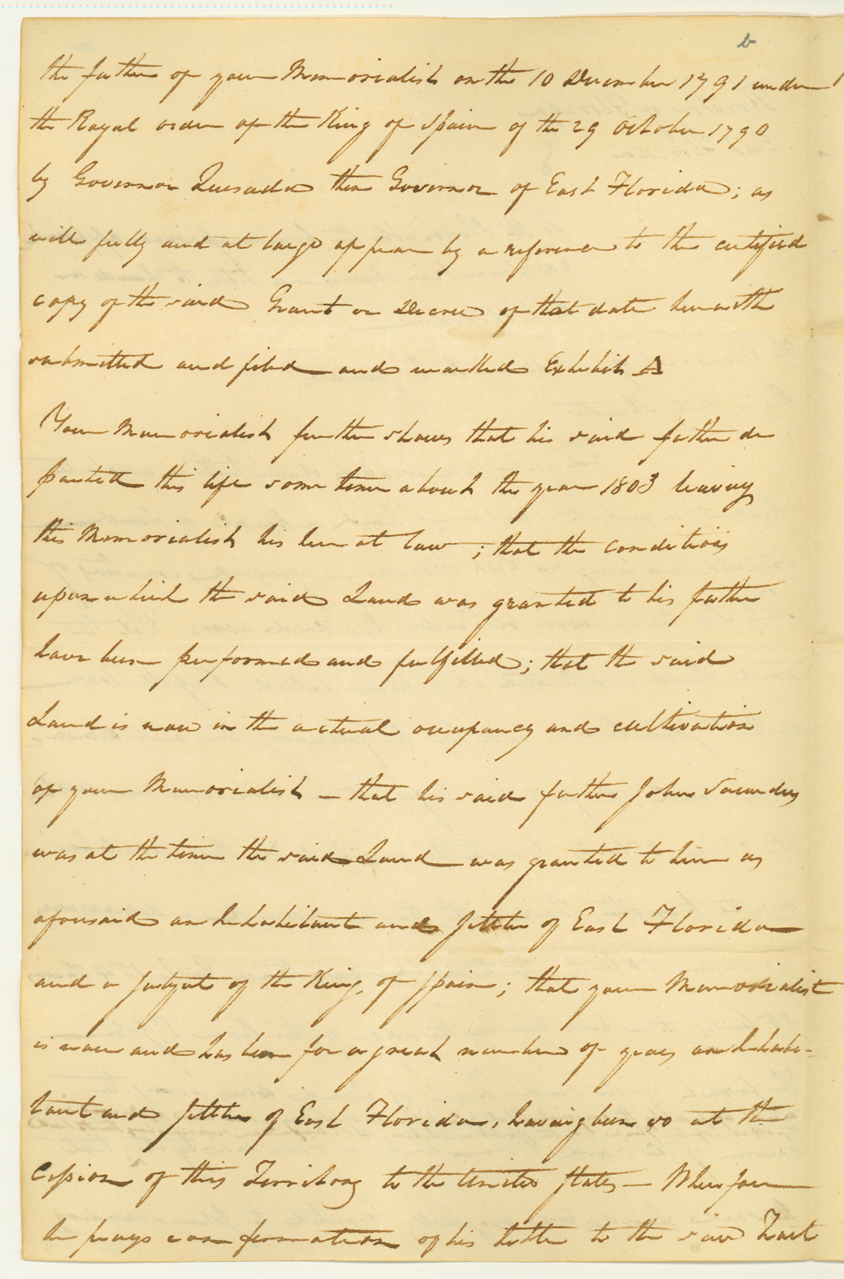 b
the father of your Memorialist on the 10 December 1791 under
the Royal order of the King of Spain of the 29 October 1790
by Governor Quesada then Governor of East Florida; as
will fully and at large appear by a reference to the certified
copy of the said Grant or Decree of that date herewith
submitted and filed and marked Exhibit A
Your Memorialist further shows that his said father de
parted this life some time about the year 1803 leaving
this Memorialist his heir at law; that the conditions
upon which the said Land was granted to his father
have been performed and fulfilled; that the said
Land is now in the actual occupancy and cultivation
of your Memorialist – that his said father John Saunders
was at the time the said Land was granted to him as
aforesaid an Inhabitant and Settler of East Florida
and a subject of the King of Spain; that your Memorialist
is now and has been for a great number of years an Inhabi-
tant and Settler of East Florida, having been so at the
Cession of this Territory to the United States – Wherefore
he prays confirmation of his title to the said Tract